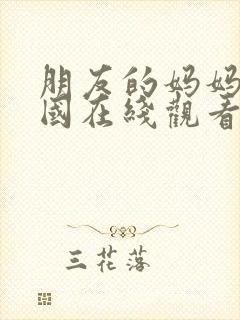 朋友的妈妈
國在綫觀看
三花落